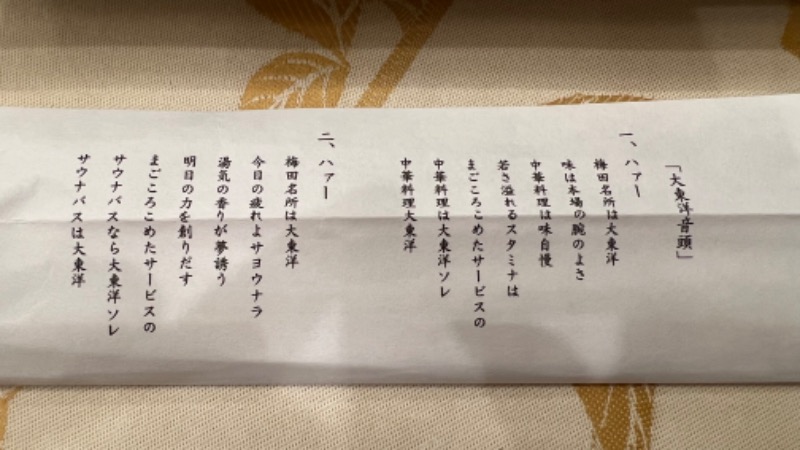 「大東洋音頭」
一、ハァー
梅田名所は大東洋
味は本場の腕のよさ
中華料理は味自慢
若さ溢れるスタミナは
まごころこめたサービスの
中華料理は大東洋ソレ
中華料理大東洋
二、ハァー
梅田名所は大東洋
今日の疲れよサヨウナラ
湯気の香りが夢誘う
明日の力を創りだす
まごころこめたサービスの
サウナバスなら大東洋ソレ
サウナバスは大東洋